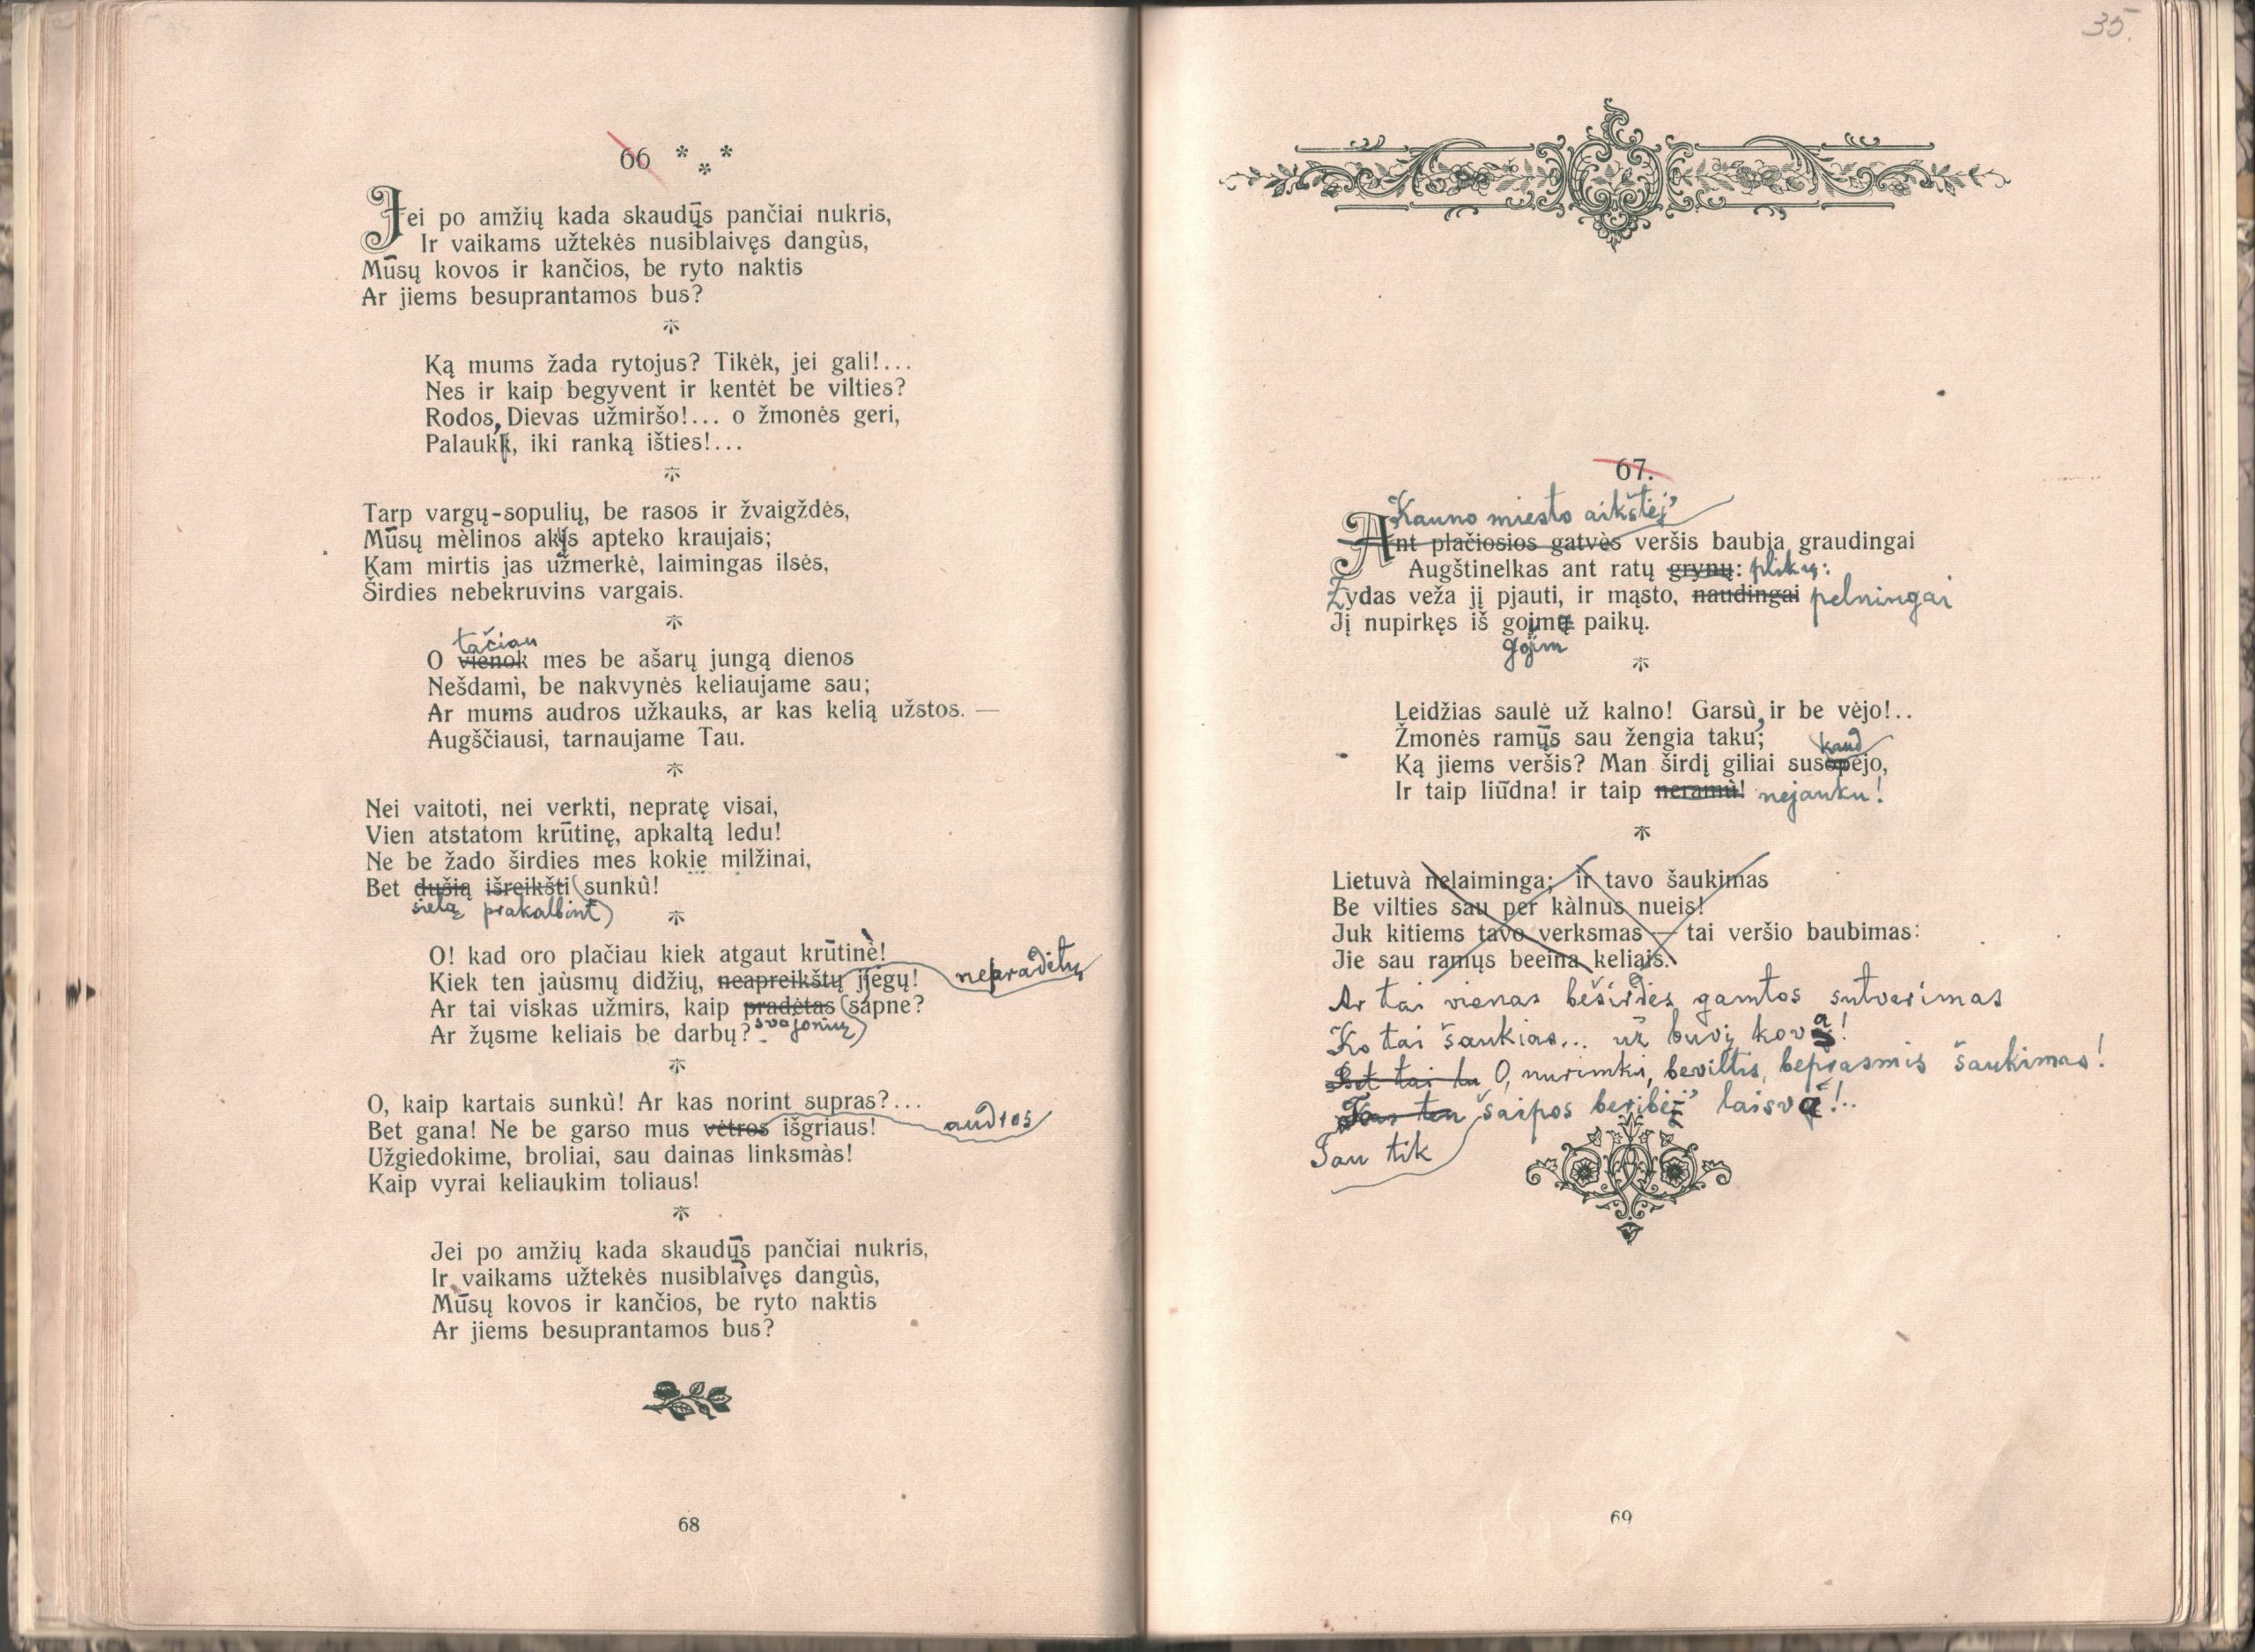 66 * * *
Jei po amžių kada skaudūs pančiai nukris,
Ir vaikams užtekės nusiblaivęs dangùs,
Mūsų kovos ir kančios, be ryto naktis
Ar jiems besuprantamos bus?
*
Ką mums žada rytojus? Tikėk, jei gali!...
Nes ir kaip begyvent ir kentėt be vilties?
Rodos, Dievas užmiršo!... o žmonės geri,
Palauk, iki ranką išties!...
*
Tarp vargų-sopulių, be rasos ir žvaigždės,
Mūsų mėlinos akys apteko kraujais;
Kam mirtis jas užmerkė, laimingas ilsės,
Širdies nebekruvins vargais.
*
tačiau
O vienok mes be ašarų jungą dienos
Nešdami, be nakvynės keliaujame sau;
Ar mums audros užkauks, ar kas kelią užstos. —
Augščiausi, tarnaujame Tau.
*
Nei vaitoti, nei verkti, nepratę visai,
Vien atstatom krūtinę, apkaltą ledu!
Ne be žado širdies mes kokie milžinai,
Bet dušią išreikšti sunkù!
sielą prakalbint
*
O! kad oro plačiau kiek atgaut krūtinė!
Kiek ten jaùsmų didžių, neapreikštų jiėgų! nepradėtų
Ar tai viskas užmirs, kaip pradėtas sapne?
Ar žųsme keliais be darbų? svajonių
*
O, kaip kartais sunkù! Ar kas norint supras?...
Bet gana! Ne be garso mus vėtros išgriaus! audros
Užgiedokime, broliai, sau dainas linksmàs!
Kaip vyrai keliaukim toliaus!
*
Jei po amžių kada skaudūs pančiai nukris,
Ir vaikams užtekės nusiblaivęs dangùs,
Mūsų kovos ir kančios, be ryto naktis
Ar jiems besuprantamos bus?
68
35.
67.
Kauno miesto aikštėj'
Ant plačiosios gatvės veršis baubia graudingai
Augštinelkas ant ratų grynų: plikų:
Žydas veža jį pjauti, ir mąsto, naudingai pelningai
Jį nupirkęs iš goimų paikų.
gojim
*
Leidžias saulė už kalno! Garsù, ir be vėjo!..
Žmonės ramūs sau žengia taku;
kaud
Ką jiems veršis? Man širdį giliai susopėjo,
Ir taip liūdna! ir taip neramù! nejauku!
*
Lietuvà nelaiminga; ir tavo šaukimas
Be vilties sau per kàlnus nueis!
Juk kitiems tavo verksmas — tai veršio baubimas:
Jie sau ramųs beeina keliais.
Ar tai vienas beširdės gamtos sutverimas
Ko tai šaukias... už buvį kova!
Bet tai tu O, nurimki, beviltis, beprasmis šaukimas!
Tau ten šaipos beribėj' laisvė!..
Tau tik
69